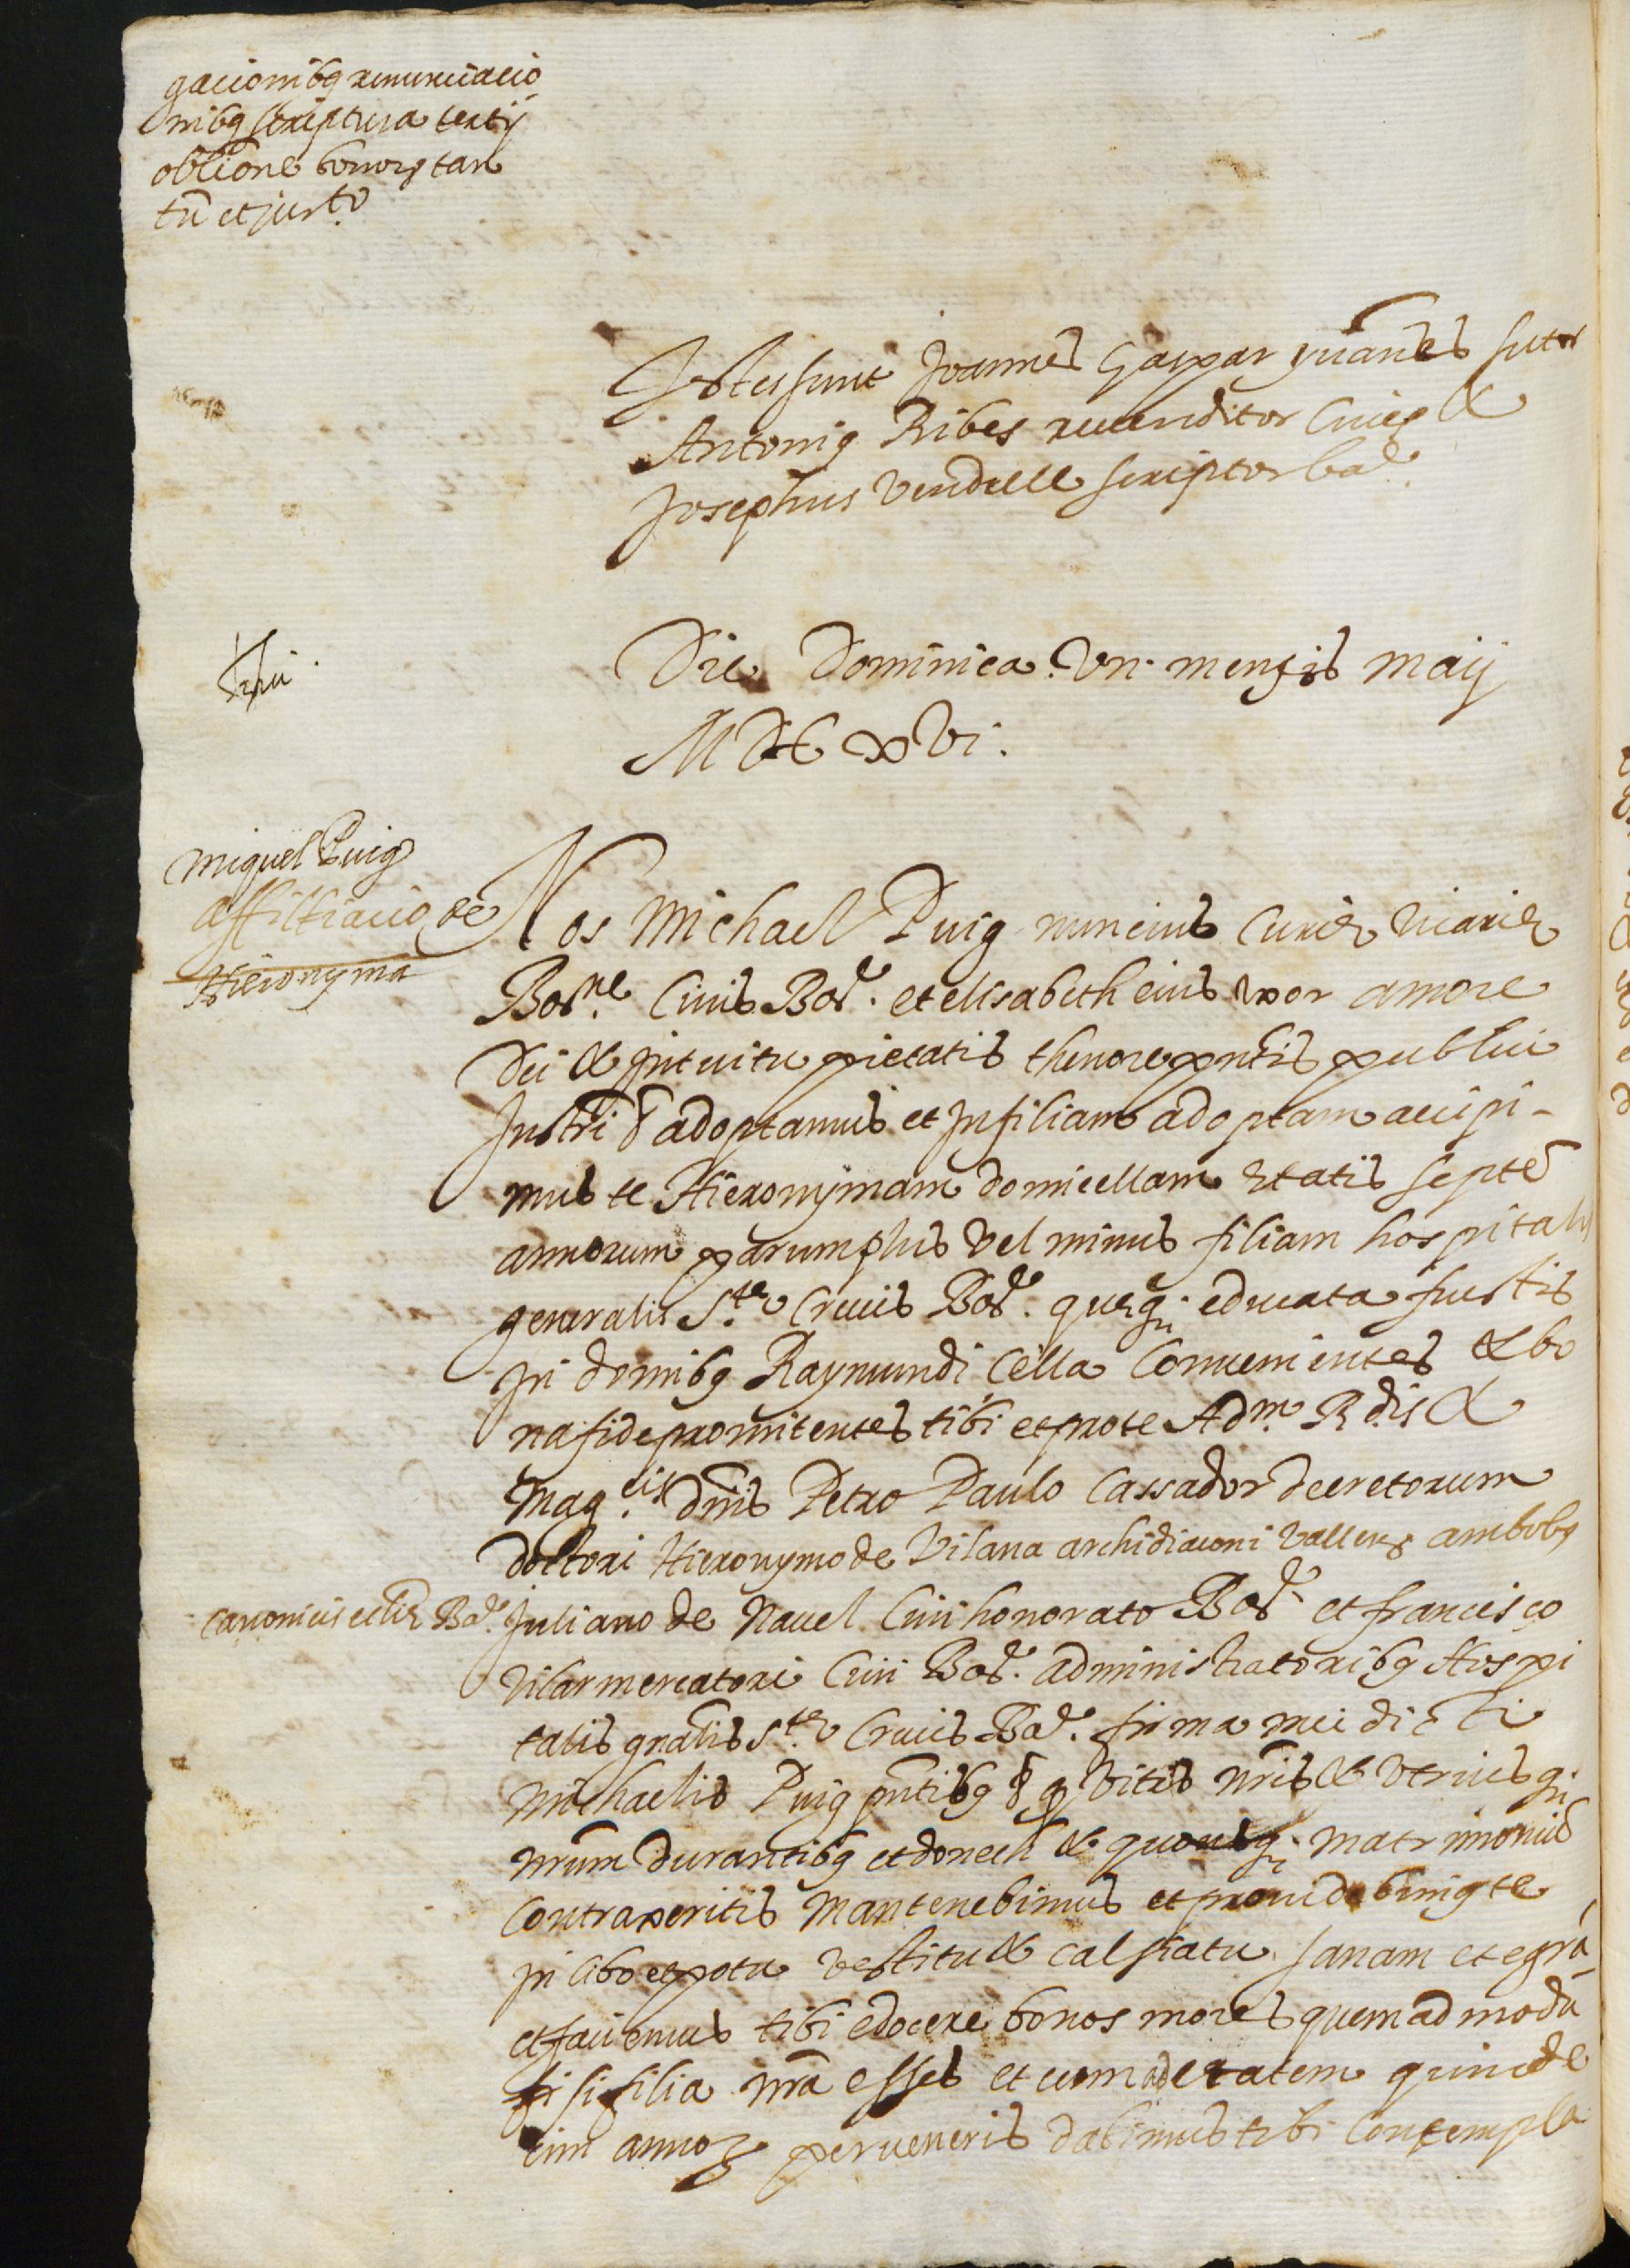 gacionibq renunciacio
nibq scriptura tertij
oblione bonorz tan
tū et jur.to
Testes sunt Joannes Gaspar sutor
Antoniq Ribes revenditor Cives &
Josephus Vendrell scriptor bar.
Die Dominica. Vn. mensis maij
MDCxvi.
Miquel Puig
affillacio de
Hieronyma
Nos Michael Puig nuncius Curiæ Vicariæ
Bar.ne Civis Bar. et elisabeth eius vxor amore
Dei & jntuitu pietatis thenore pntis publici
Jnstri adoptamus et jn filiam adoptam accipi-
mus te Hieronymam domicellam ætatis septē
annorum parum plus vel minus filiam hospitalis
generalis S.tæ Crucis Bar. quæq. educata fuistis
jn domibq Raymundi Cella Convenientes & bo
na fide promitentes tibi et pro te Ad.m Rdis &
Mag.cis dnis Petro Paulo Cassador decretorum
doctori Hieronymo de Vilana archidiaconi Vallens ambobq
canonicis ecliæ Bar. Juliano de Navel Civi honorato Bar. et francisco
Vilar mercatori Civi Bar. administratoribq Hospi
talis gnalis S.tæ Crucis Bar. firma mei dicti
Michaelis Puig pntibq & q vitis nris & vtriusq.
nrum durantibq et donech & quousq. matrimoniū
Contraxeritis Mantenebimus et providebimq te
jn Cibo et potu vestitu & calsiatu sanam et egrā
et faciemus tibi edocere bonos mores quemadmodū
si filia nrā esses et cum ad etatem quinde
cim annoz perveneris dabimus tibi Contempla